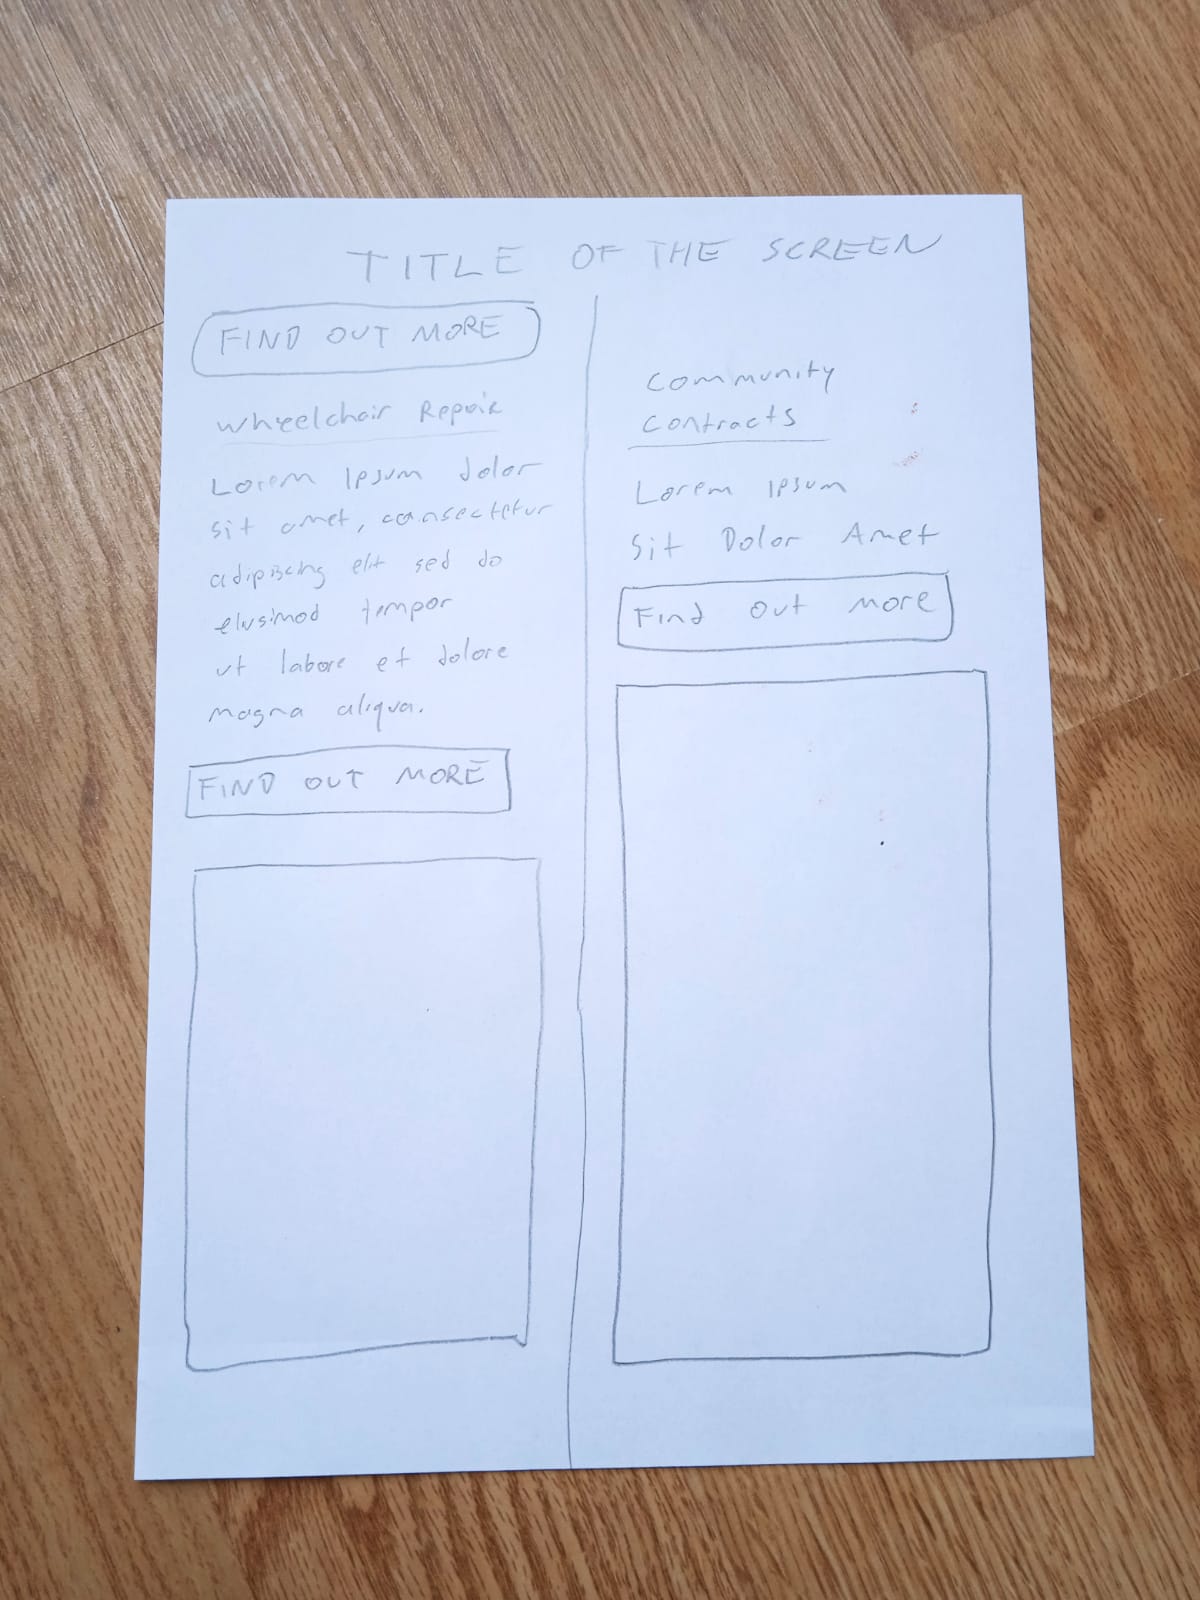 TITLE OF THE SCREEN
FIND OUT MORE
Wheelchair Repair
Lorem Ipsum dolor
sit amet, consectetur
adipiscing elit sed do
eiusimod tempor
ut labore et dolore
magna aliqua.
FIND OUT MORE
Community
Contracts
Lorem Ipsum
Sit Dolor Amet
Find out more